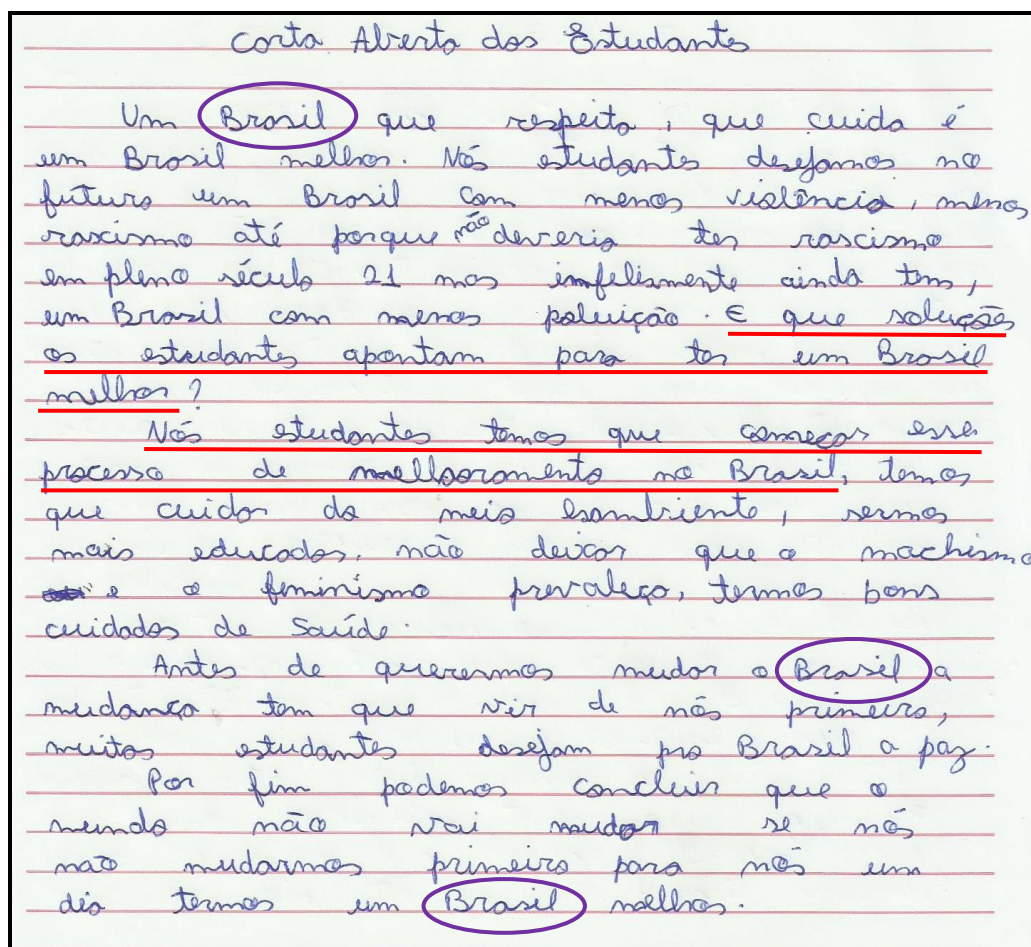 Carta Aberta dos Estudantes
Um Brasil que respeita, que cuida é
um Brasil melhor. Nós estudantes desejamos no
futuro um Brasil com menos violência, menos
rascismo até porque não deveria ter rascismo
em pleno século 21 mas imfelismente ainda tem,
um Brasil com menos poluição. E que soluções
os estudantes apontam para ter um Brasil
melhor?
Nós estudantes temos que começar esse
processo de melhoramento no Brasil, temos
que cuidar do meio ambiente, sermos
mais educados, não deixar que o machismo
e o feminismo prevaleça, termos bons
cuidados de Saúde.
Antes de querermos mudar o Brasil a
mudança tem que vir de nós primeiro,
muitos estudantes desejam pro Brasil a paz.
Por fim podemos concluir que o
mundo não vai mudar se nós
não mudarmos primeiro para nós um
dia termos um Brasil melhor.